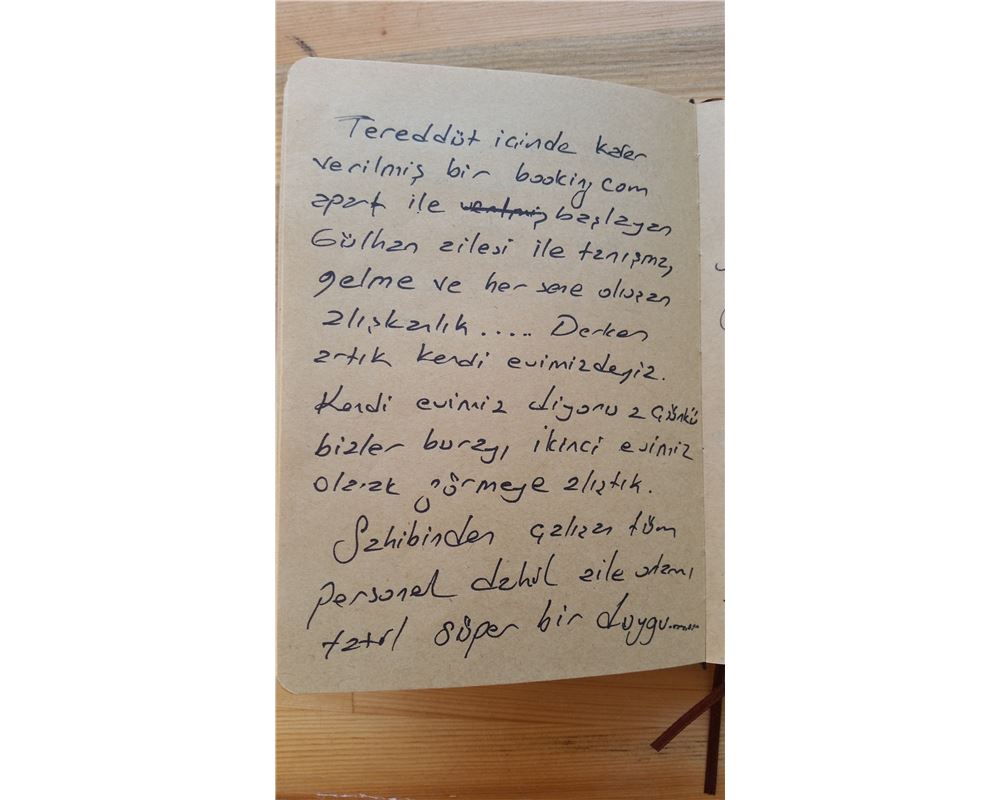 Tereddüt içinde karar
verilmiş bir booking.com
apart ile başlayan
Gülhan ailesi ile tanışma,
gelme ve her sene oluşan
alışkanlık..... Derken
artık kendi evimizdeyiz.
Kendi evimiz diyoruz çünkü
bizler burayı, ikinci evimiz
olarak görmeye alıştık.
Sahibinden çalışan tüm
personel dahil aile ortamı
tatil süper bir duygu......